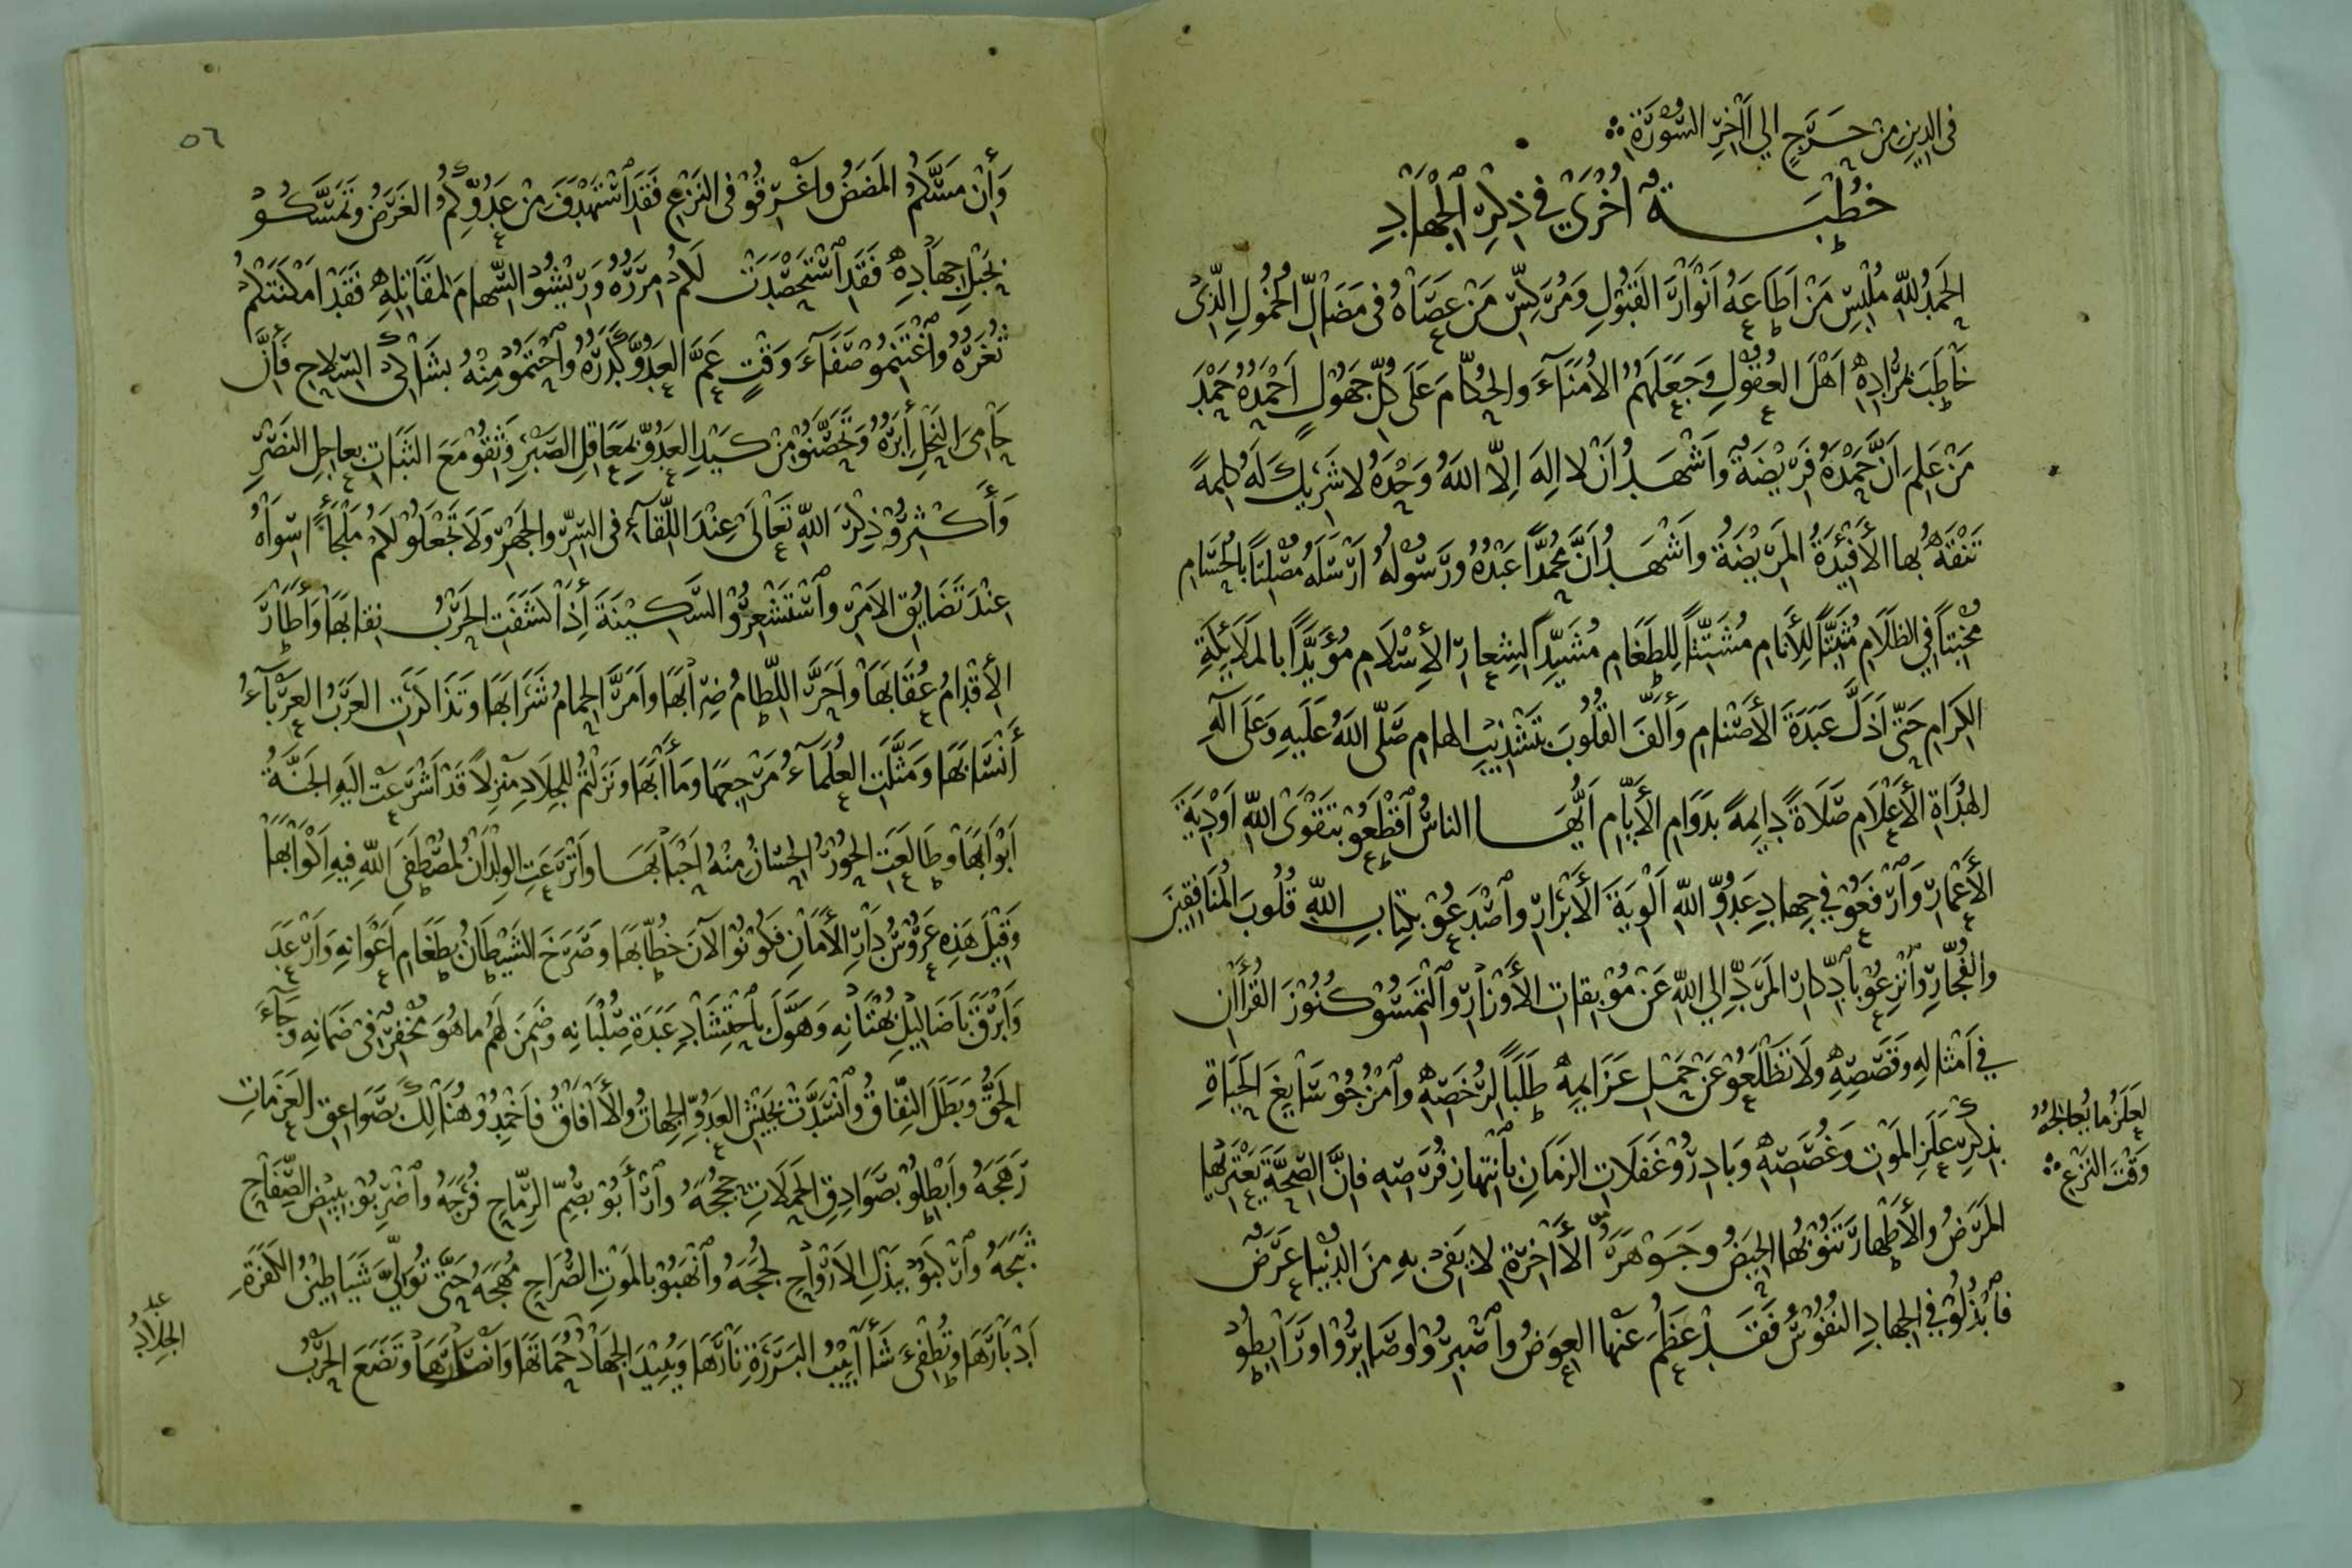 في الدين من حرج الي اآخر السورة
خطبة اخري في ذكر الجهاد
الحمد لله ملبس من اطاعه انوار القبول ومركس من عصاه في مضال الخمول الذي
خاطب بمراده اهل العقول وجعلهم الامناء والحكام علي كل جهول احمده حمد
من علم ان حمده فريضة واشهد ان لا اله الا الله وحده لا شريك له كلمة
تنقه بها الأفئدة المريضة واشهد ان محمدا عبده ورسوله ارسله مصلتا بالحسام
مخبتا في الظلام مثبتا للأنام مشتتا للطغام مشيدا لشعار الإسلام مؤيدا بالملائكة
الكرام حتي اذل عبدة الأصنام وألف القلوب بتشذيب الهام صلي الله عليه وعلي آله
الهداة الأعلام صلاة دايمة بدوام الأيام ايها الناس اقطعو بتقوي الله اودية
الأعمار وارفعو في جهاد عدو الله الوية الأبرار واصدعو بكتاب الله قلوب المنافقين
والفجار وانزعو بادكار المرد الي الله عن موبقات الأوزار والتمسو كنوز القرأان
في امثاله وقصصه ولا تظلعو عن حمل عزايمه طلبا لرخصه وامزجو سايغ الحياة
بذكر علز الموت وغصصه وبادرو غفلات الزمان بانتهاز فرصه فان الصحة يعتريها
المرض والأطهار تنوبها الحيض وجوهر الأاخرة لا يفي به من الدنيا عرض
فابذلو في الجهاد النفوس فقد عظم عنها العوض واصبرو اوصابرو اورابطو
لعلز ما يعالجه
وقت النزع
٥٦
وأن مسكم المضض واغرقو في النزع فقد استهدف من عدوكم الغرض وتمسكو
بحبل جهاده فقد استحصدت لكم امرره وريشو السهام لمقاتله فقد امكنتكم
ثغره واغتنمو صفاء وقت عم العدو كدره واحتمو منه بشالك السلاح فأن
حامي النحل أبره وتحصنو من كيد العدو بمعاقل الصبر وثقو مع الثبات بعاجل النصر
وأكثرو ذكر الله تعالي عند اللقاء في السر والجهر ولا تجعلو لكم ملجأ اسواه
عند تضايق الامر واستشعرو السكينة أذا كشفت الحرب نقابها وأطار
الأقدام عقابها واحر اللطام ضرابها وامر الحمام شرابها وتذاكرت العرب العرباء
أنسابها ومثلت العلماء مرجعها ومأابها ونزلتم للجلاد منزلا قد اشرعت اليه الجنة
ابوابها وطالعت الحور الحسان منه احبابها واترعت الولدان لمصطفي الله فيه اكوابها
وقيل هذه عروس دار الأمان فكونو الآن خطابها وصرخ الشيطان بطغام اعوانه وارعد
وابرق باضاليل بهتانه وهول باحتشاد عبدة صلبانه وضمن لهم ما هو مخفر في ضمانه وجاء
الحق وبطل النفاق وانسدت بجيش العدو الجهات والأافاق فاخمدو هنالك بصواعق العزمات
رهجه وابطلو بصوادق الحملات حججه وارأبو بصم الرماح فرجه واضربو ببيض الصفاح
ثبجه واركبو ببذل الارواح لججه وانهبو بالموت الصراح مهجه حتي تولي شياطين الكفرة
ادبارها وتطفئ شأابيب البررة نارها ويبيد الجهاد حماتها وانصارها وتضع الحرب
الجلاد